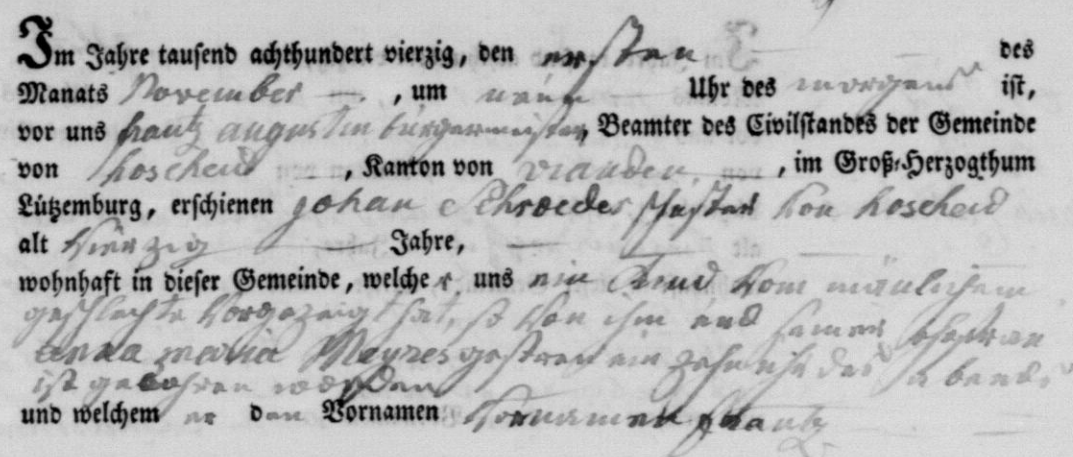 Im Jahre tausend achthundert vierzig, den ersten des
Manats November, um neun Uhr des morgens ist,
vor uns frantz augustin bürgermeister, Beamter des Civilstandes der Gemeinde
von hoscheid, Kanton von vianden, im Groß-Herzogthum
Lützemburg, erschienen johan Schroeder schuster von hoscheid
alt vierzig Jahre,
wohnhaft in dieser Gemeinde, welcher uns ein kind vom mänlichem
geschlechte vorgezeigt hat, so von ihm und seiner ehefrau
anna maria Meyres gestren um zehn uhr des abends
ist gebohren worden
und welchem er den Vornamen vornamen frantz